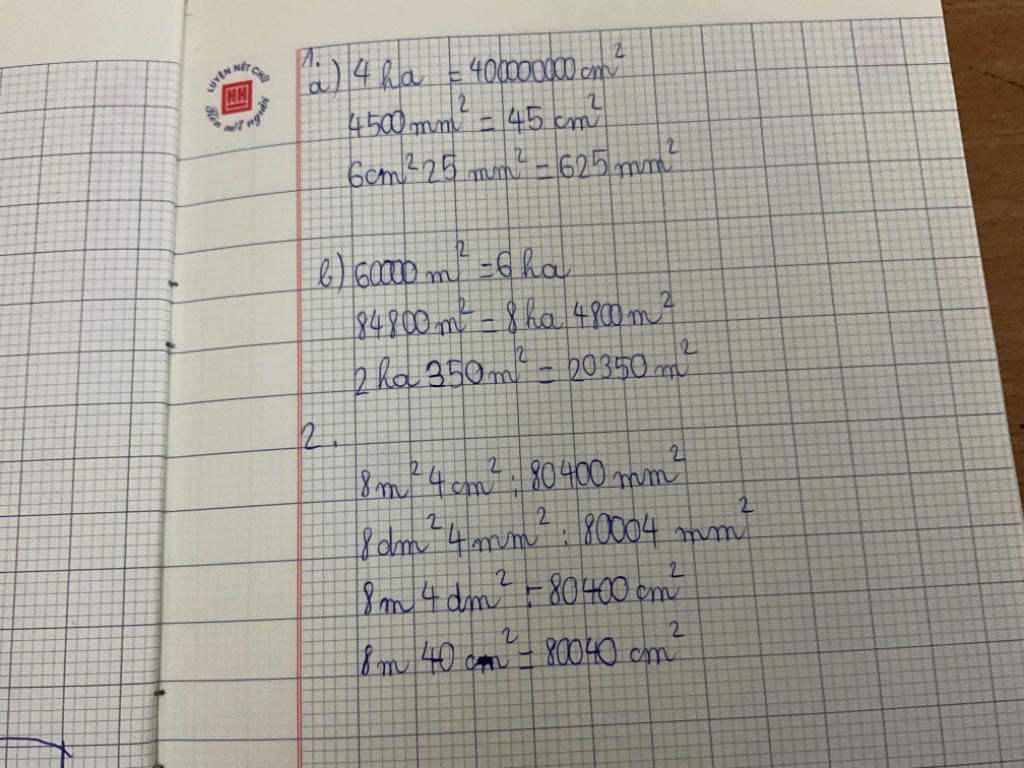 LUYỆN NÉT CHỮ
NN
Rèn nết người
1.
a) 4 ha = 400000000 cm²
4500 mm² = 45 cm²
6cm² 25 mm² = 625 mm²
b) 60000 m² = 6 ha
84800 m² = 8 ha 4800 m²
2 ha 350 m² = 20350 m²
2.
8m² 4cm² : 80400 mm²
8dm² 4mm² : 80004 mm²
8m 4dm² = 80400 cm²
8m 40 cm² = 80040 cm²